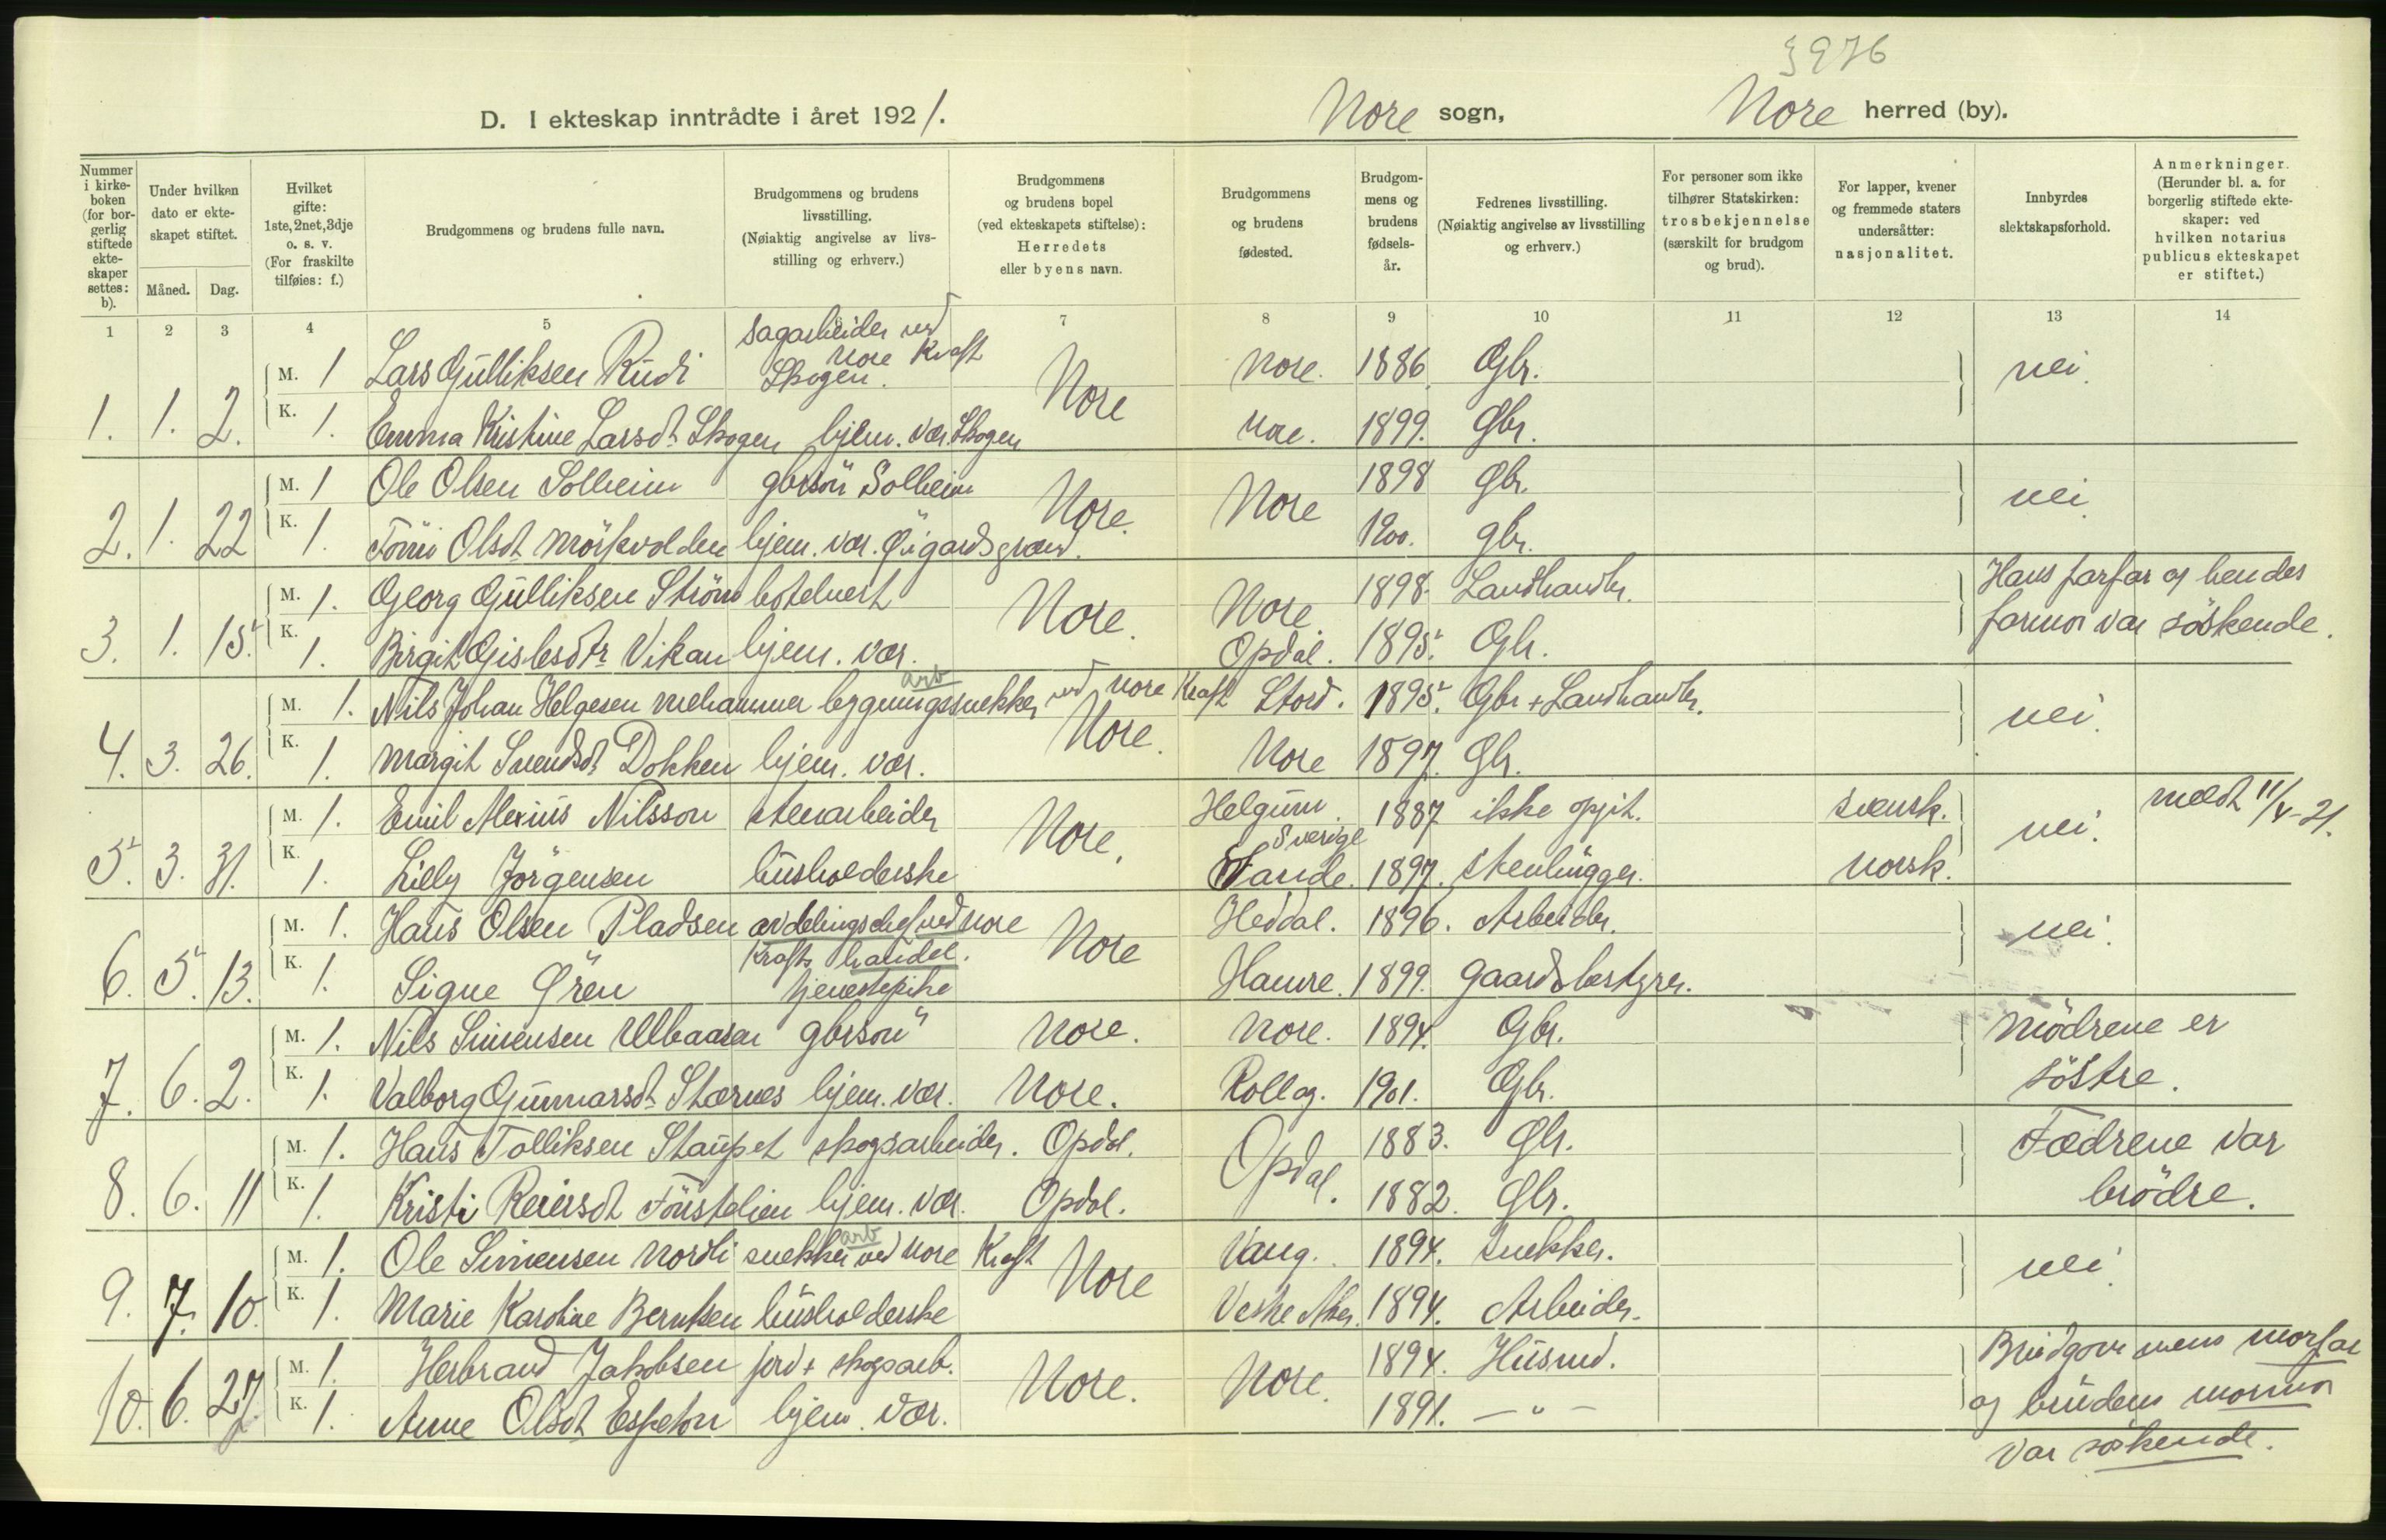 3976
D. I ekteskap inntrådte i året 1921. Nore sogn, Nore herred (by).
Nummer i kirke-boken (for bor-gerlig stiftede ekte-skaper settes: b).
Under hvilken dato er ekte-skapet stiftet.
Måned. Dag.
Hvilket gifte: 1ste, 2net, 3dje o. s. v. (For fraskilte tilføies: f.)
Brudgommens og brudens fulle navn.
Brudgommens og brudens livsstilling. (Nøiaktig angivelse av livs-stilling og erhverv.)
Brudgommens og brudens bopel (ved ekteskapets stiftelse): Herredets eller byens navn.
Brudgommens og brudens fødested.
Brudgom-mens og brudens fødsels-år.
Fedrenes livsstilling. (Nøiaktig angivelse av livsstilling og erhverv.)
For personer som ikke tilhører Statskirken: trosbekjennelse (særskilt for brudgom og brud).
For lapper, kvener og fremmede staters undersåtter: nasjonalitet.
Innbyrdes slektskapsforhold.
Anmerkninger. (Herunder bl. a. for borgerlig stiftede ekte-skaper: ved hvilken notarius publicus ekteskapet er stiftet.)
1 2 3 4 5 7 8 9 10 11 12 13 14
sagarbeider ved Nore Kraft
M. 1 Lars Gulliksen Rudi Skogen. Nore. 1886. Gbr. nei.
1. 1. 2. K. 1. Emma Kristine Larsdt Skogen hjem. vær. Skogen Nore Nore. 1899. Gbr.
M. 1 Ole Olsen Solheim gbrsön Solheim Nore. Nore 1898 Gbr. nei.
2. 1. 22 K. 1. Töni Olsdt Mörkvolden hjem. vær. Öigardsgrend. 1900. gbr.
M. 1. Georg Gulliksen Ström hotelvert Nore. Nore. 1898. Landhandlr. Hans farfar og hendes
3. 1. 15. K. 1. Birgit Gislesdtr Vikan hjem. vær. Opdal. 1895. Gbr. farmor var söskende.
M. 1. Nils Johan Helgesen Mehammer bygningssnekker arb ved Nore Kraft Stord. 1895. Gbr + Landhandlr. nei.
4. 3. 26. K. 1. Margit Svendsdt Dokken hjem. vær. Nore. Nore 1897. Gbr.
M. 1. Emil Alexius Nilsson stenarbeider Nore. Helgum. Sverige 1887 ikke opgit. svensk. nei. meldt 11/4-21.
5. 3. 31. K. 1. Lilly Jörgensen husholderske Sande. 1897. stenhugger. norsk.
M. 1. Hans Olsen Pladsen avdelingschef ved Nore Nore Heddal. 1896. Arbeider. nei.
Krafts handel.
6. 5. 13. K. 1. Signe Ören tjenestepike Hamre. 1899. Gaardsbestyrer.
M. 1. Nils Simensen Ulbaasen gbrsön Nore. Nore. 1894. Gbr. Mödrene er
7. 6. 2. K. 1. Valborg Gunnarsdt Stærnes hjem. vær. Nore. Rollag. 1901. Gbr. söstre.
M. 1. Hans Tolliksen Staupet skogsarbeider. Opdal. Opdal. 1883. Gbr. Fædrene var
8. 6. 11 K. 1. Kristi Reiersdt Tönstelien hjem. vær. Opdal. 1882. Gbr. brödre.
M. 1. Ole Simensen Nordli snekker arb ved Nore Kraft Nore Vang. 1894. snekker. nei.
9. 7. 10. K. 1. Marie Karoline Berntsen husholderske Vestre Aker. 1894. Arbeider.
M. 1. Herbrand Jakobsen jord + skogsarb. Nore. Nore. 1894. Husmd. Brudgommens morfar
10. 6. 27. K. 1. Anne Olsdt Espeton hjem. vær. 1891. — " — og brudens mormor
var söskende.